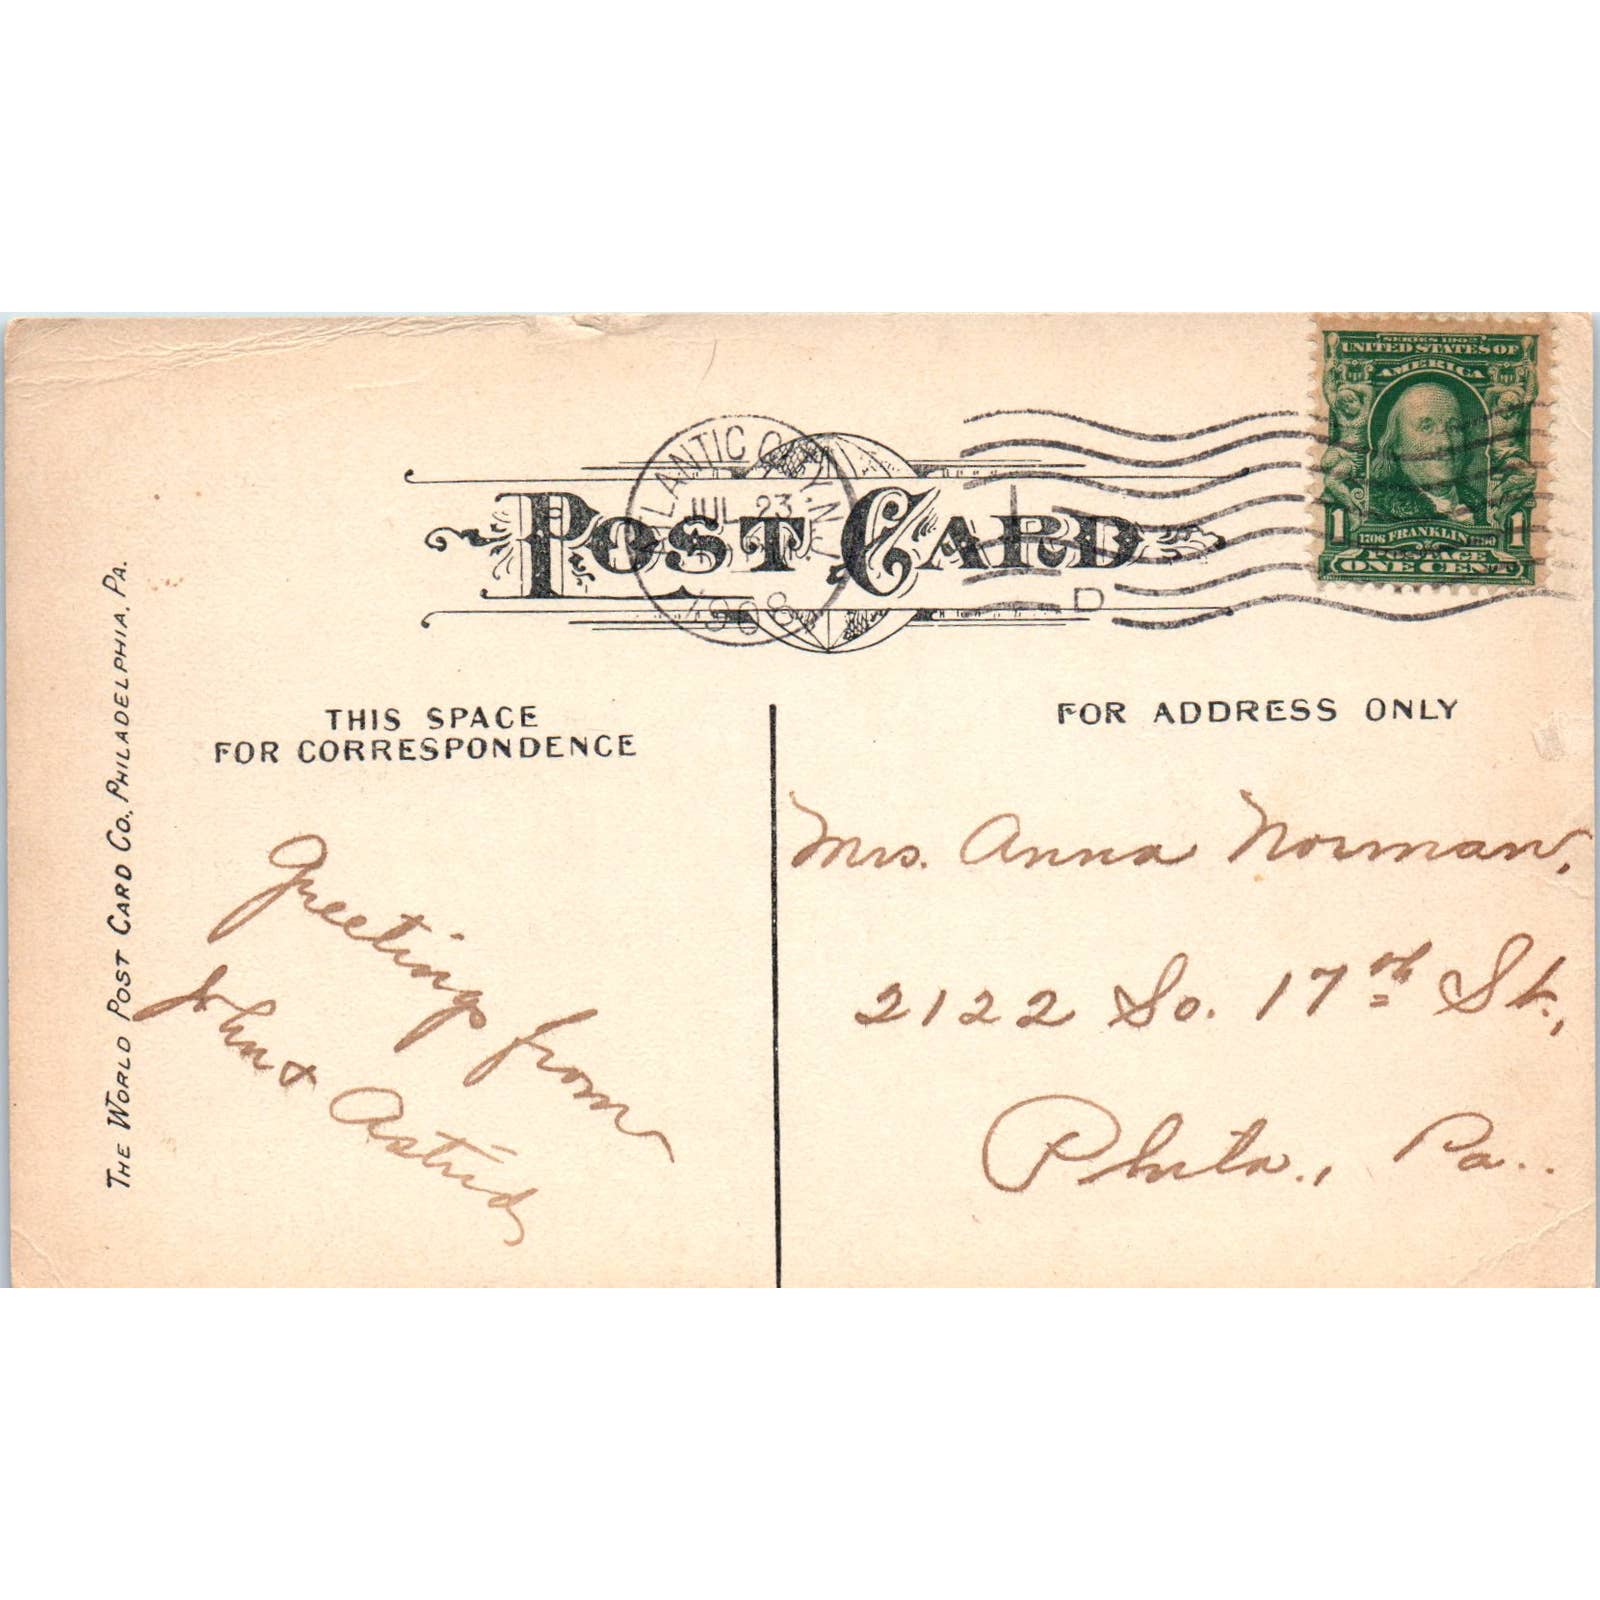 SERIES 1902
UNITED STATES OF
AMERICA
1 1706 FRANKLIN 1790 1
POSTAGE
ONE CENT
ATLANTIC CITY, N.J.
JUL 23
1908
D
POST CARD
THE WORLD POST CARD CO., PHILADELPHIA, PA.
THIS SPACE
FOR CORRESPONDENCE
Greetings from
John & Astrid
FOR ADDRESS ONLY
Mrs. Anna Norman,
2122 So. 17th St.,
Phila., Pa..